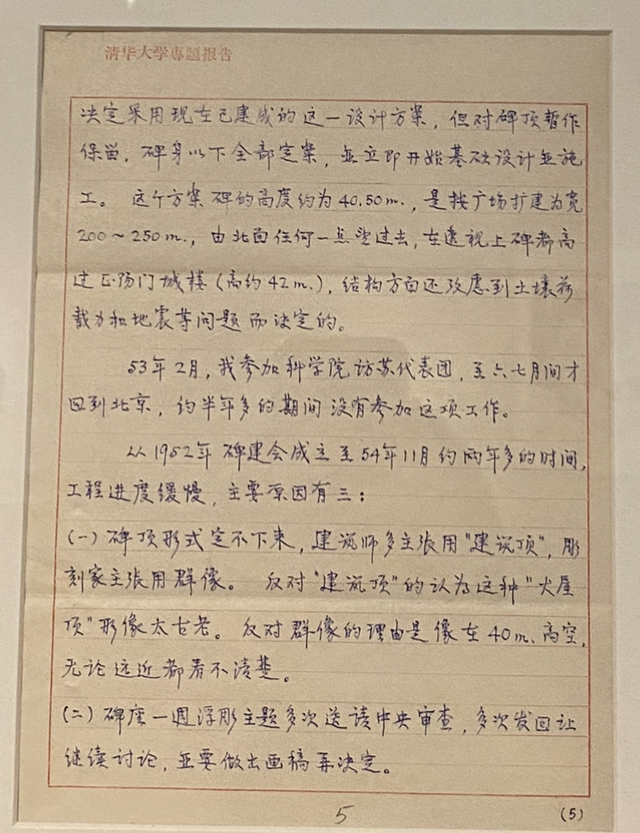 清华大学専題报告
决定采用现在已建成的这一设计方案，但对碑顶暂作
保留，碑身以下全部定案，並立即开始基础设计並施
工。 这个方案碑的高度约为40.50m.，是按广场扩建为宽
200～250m.，由北面任何一点望过去，在透视上碑都高
过正阳门城楼（高约42m.），结构方面还攷虑到土壤荷
载力和地震等问题而决定的。
53年2月，我参加科学院访苏代表团，至六七月间才
回到北京，约半年多的期间没有参加这项工作。
从1952年碑建会成立至54年11月约两年多的时间，
工程进度缓慢，主要原因有三：
(一) 碑顶形式定不下来，建筑师多主张用"建筑顶"，彫
刻家主张用群像。 反对"建筑顶"的认为这种"大屋
顶"形像太古老。反对群像的理由是像在40m.高空，
无论远近都看不清楚。
(二) 碑座一週浮彫主题多次送请中央审查，多次发回让
继续讨论，並要做出画稿再决定。
5
(5)